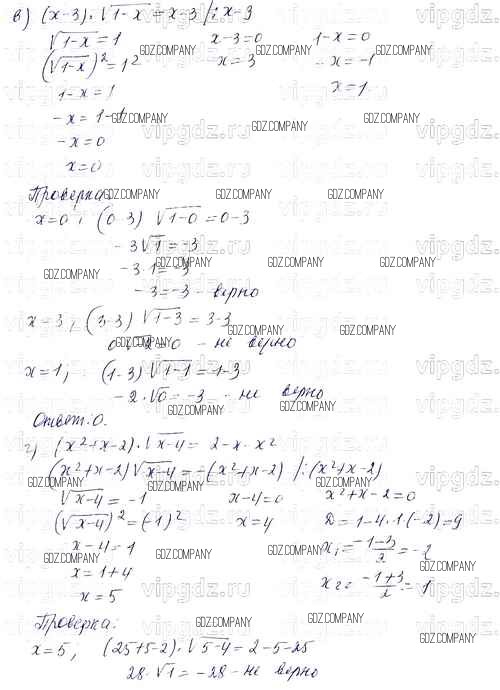 в) (x-3)·√1-x = x-3 /: x-3
√1-x = 1 x-3=0 1-x=0
(√1-x)² = 1² x=3 -x=-1
1-x=1 x=1
-x=1-1
-x=0
x=0
Проверка:
x=0, (0-3)·√1-0 = 0-3
-3√1 = -3
-3·1=-3
-3=-3 - верно
x=3, (3-3)√1-3 = 3-3
0·√-2=0 - не верно
x=1, (1-3)√1-1 = 1-3
-2·√0 = -3 - не верно
Ответ: 0.
г) (x²+x-2)·√x-4 = 2-x-x²
(x²+x-2)√x-4 = -(x²+x-2) /:(x²+x-2)
√x-4 = -1 x-4=0 x²+x-2=0
(√x-4)² = (-1)² x=4 D=1-4·1·(-2)=9
x-4=1 x₁=(-1-3)/2=-2
x=1+4
x=5 x₂=(-1+3)/2=1
Проверка:
x=5, (25+5-2)·√5-4 = 2-5-25
28·√1 = -28 - не верно
GDZ.COMPANY
vipgdz.ru